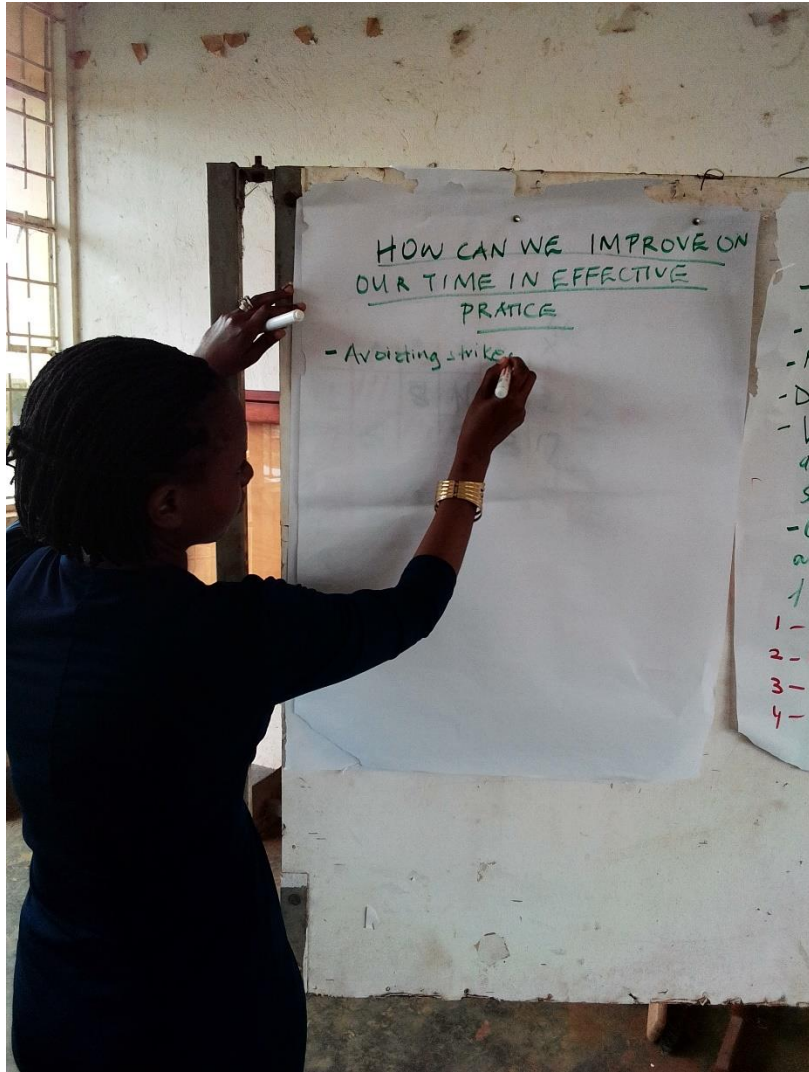 HOW CAN WE IMPROVE ON
OUR TIME IN EFFECTIVE
PRATICE
- Avoiding strike
1 -
2 -
3 -
4 -